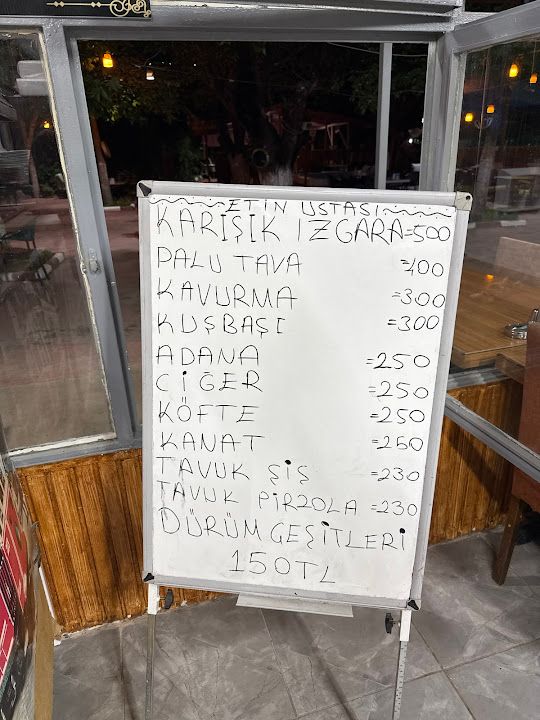 ETİN USTASI
KARIŞIK IZGARA=500
PALU TAVA =400
KAVURMA =300
KUŞBAŞI =300
ADANA =250
CİĞER =250
KÖFTE =250
KANAT =260
TAVUK ŞİŞ =230
TAVUK PİRZOLA =230
DÜRÜM GEŞİTLERİ
150TL